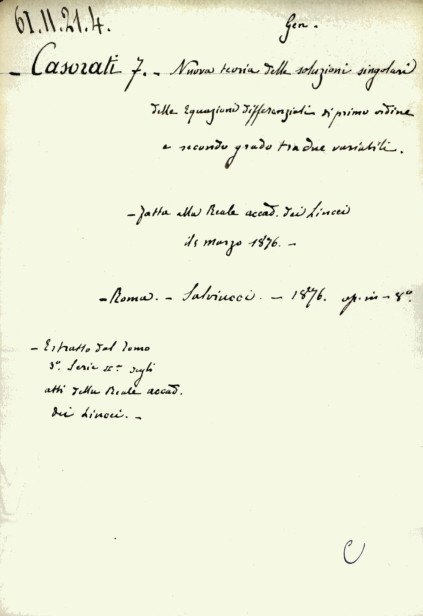 61.11.21.4.
Gen.
- Casorati F. - Nuova teoria delle soluzioni singolari
delle Equazioni differenziali di primo ordine
e secondo grado tra due variabili.
- fatta alla Reale accad. dei Lincei
il 5 marzo 1876. -
- Roma. - Salviucci. - 1876. op. in - 8º
- Estratto dal Tomo
3º. Serie IIª degli
atti della Reale accad.
dei Lincei. -
C